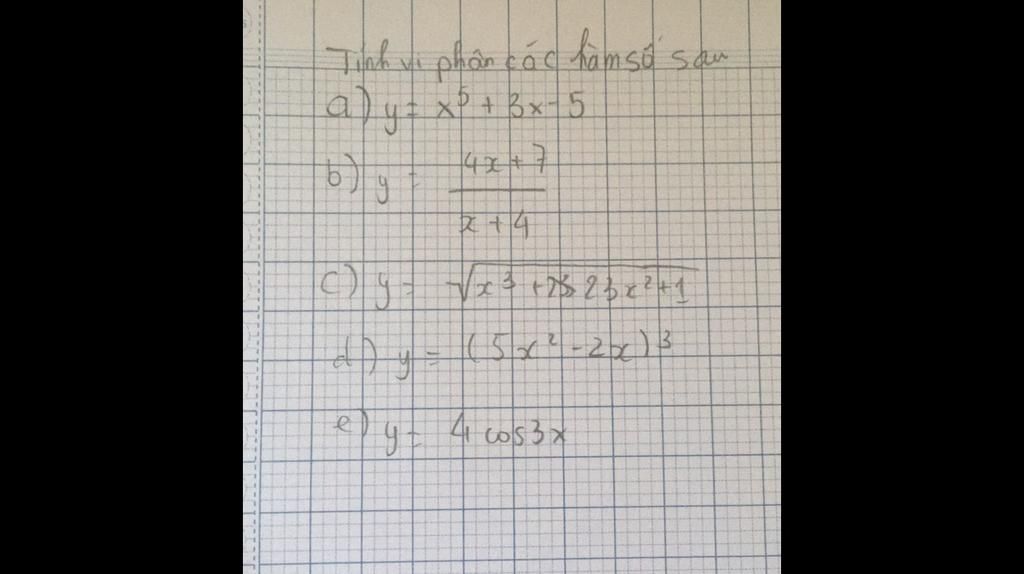 Tính vi phân các hàm số sau
a) y = x⁵ + 3x - 5
b) y = (4x + 7)/(x + 4)
c) y = √(x³ + 23x² + 1)
d) y = (5x² - 2x)³
e) y = 4 cos3x